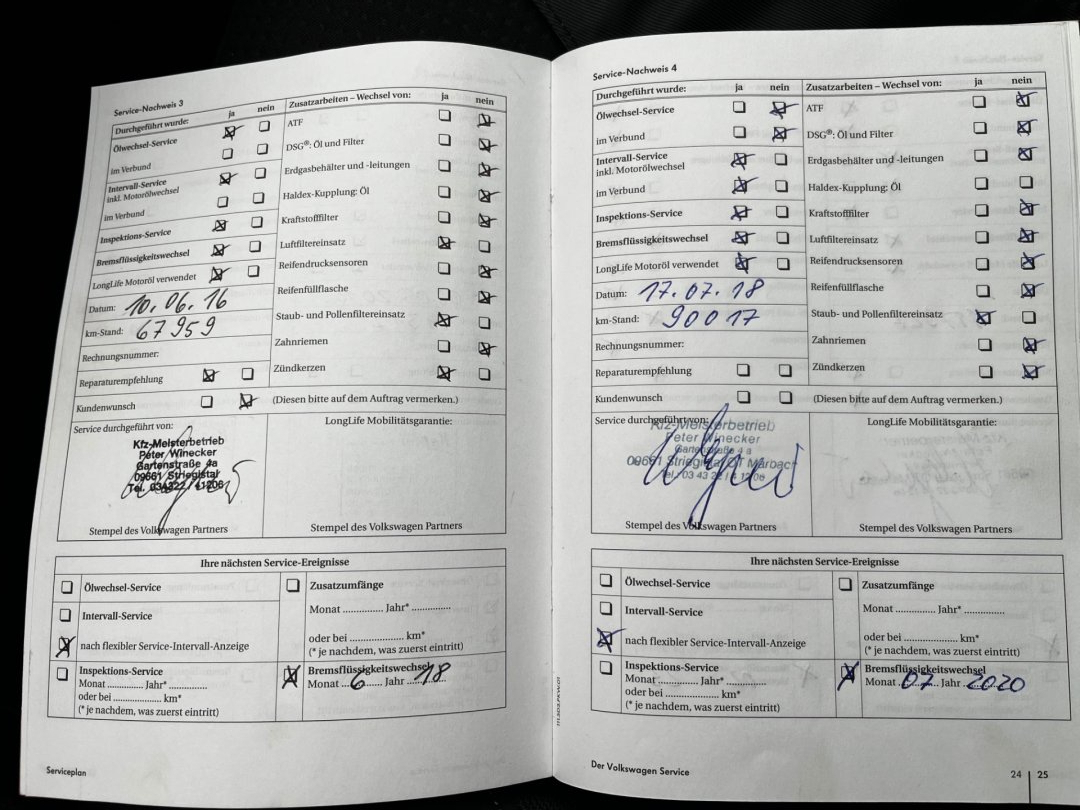 Service-Nachweis 3
ja nein
Durchgeführt wurde:
Ölwechsel-Service
im Verbund
Intervall-Service
inkl. Motorölwechsel
im Verbund
Inspektions-Service
Bremsflüssigkeitswechsel
LongLife Motoröl verwendet
Datum: 10.06.16
km-Stand: 67959
Rechnungsnummer:
Reparaturempfehlung
Kundenwunsch
Zusatzarbeiten – Wechsel von: ja nein
ATF
DSG®: Öl und Filter
Erdgasbehälter und -leitungen
Haldex-Kupplung: Öl
Kraftstofffilter
Luftfiltereinsatz
Reifendrucksensoren
Reifenfüllflasche
Staub- und Pollenfiltereinsatz
Zahnriemen
Zündkerzen
(Diesen bitte auf dem Auftrag vermerken.)
Service durchgeführt von:
Kfz-Meisterbetrieb
Peter Winecker
Gartenstraße 4a
09661 Striegistal
Tel. 034322 / 41206
Stempel des Volkswagen Partners
LongLife Mobilitätsgarantie:
Stempel des Volkswagen Partners
Ihre nächsten Service-Ereignisse
Ölwechsel-Service
Intervall-Service
nach flexibler Service-Intervall-Anzeige
Inspektions-Service
Monat ............. Jahr* ..............
oder bei ..................... km*
(* je nachdem, was zuerst eintritt)
Zusatzumfänge
Monat ............... Jahr* ...............
oder bei .................... km*
(* je nachdem, was zuerst eintritt)
Bremsflüssigkeitswechsel
Monat ...6...... Jahr ....18
Serviceplan
111.5D3.FKW.01
Service-Nachweis 4
Durchgeführt wurde: ja nein
Ölwechsel-Service
im Verbund
Intervall-Service
inkl. Motorölwechsel
im Verbund
Inspektions-Service
Bremsflüssigkeitswechsel
LongLife Motoröl verwendet
Datum: 17.07.18
km-Stand: 90017
Rechnungsnummer:
Reparaturempfehlung
Kundenwunsch
Zusatzarbeiten – Wechsel von: ja nein
ATF
DSG®: Öl und Filter
Erdgasbehälter und -leitungen
Haldex-Kupplung: Öl
Kraftstofffilter
Luftfiltereinsatz
Reifendrucksensoren
Reifenfüllflasche
Staub- und Pollenfiltereinsatz
Zahnriemen
Zündkerzen
(Diesen bitte auf dem Auftrag vermerken.)
Service durchgeführt von:
Kfz-Meisterbetrieb
Peter Winecker
Gartenstraße 4 a
09661 Striegistal/OT Marbach
Tel. 03 43 22 / 4 12 06
Stempel des Volkswagen Partners
LongLife Mobilitätsgarantie:
Stempel des Volkswagen Partners
Ihre nächsten Service-Ereignisse
Ölwechsel-Service
Intervall-Service
nach flexibler Service-Intervall-Anzeige
Inspektions-Service
Monat ............. Jahr* ..............
oder bei ..................... km*
(* je nachdem, was zuerst eintritt)
Zusatzumfänge
Monat ............... Jahr* ...............
oder bei .................... km*
(* je nachdem, was zuerst eintritt)
Bremsflüssigkeitswechsel
Monat ..07...... Jahr ..2020
Der Volkswagen Service
24 | 25